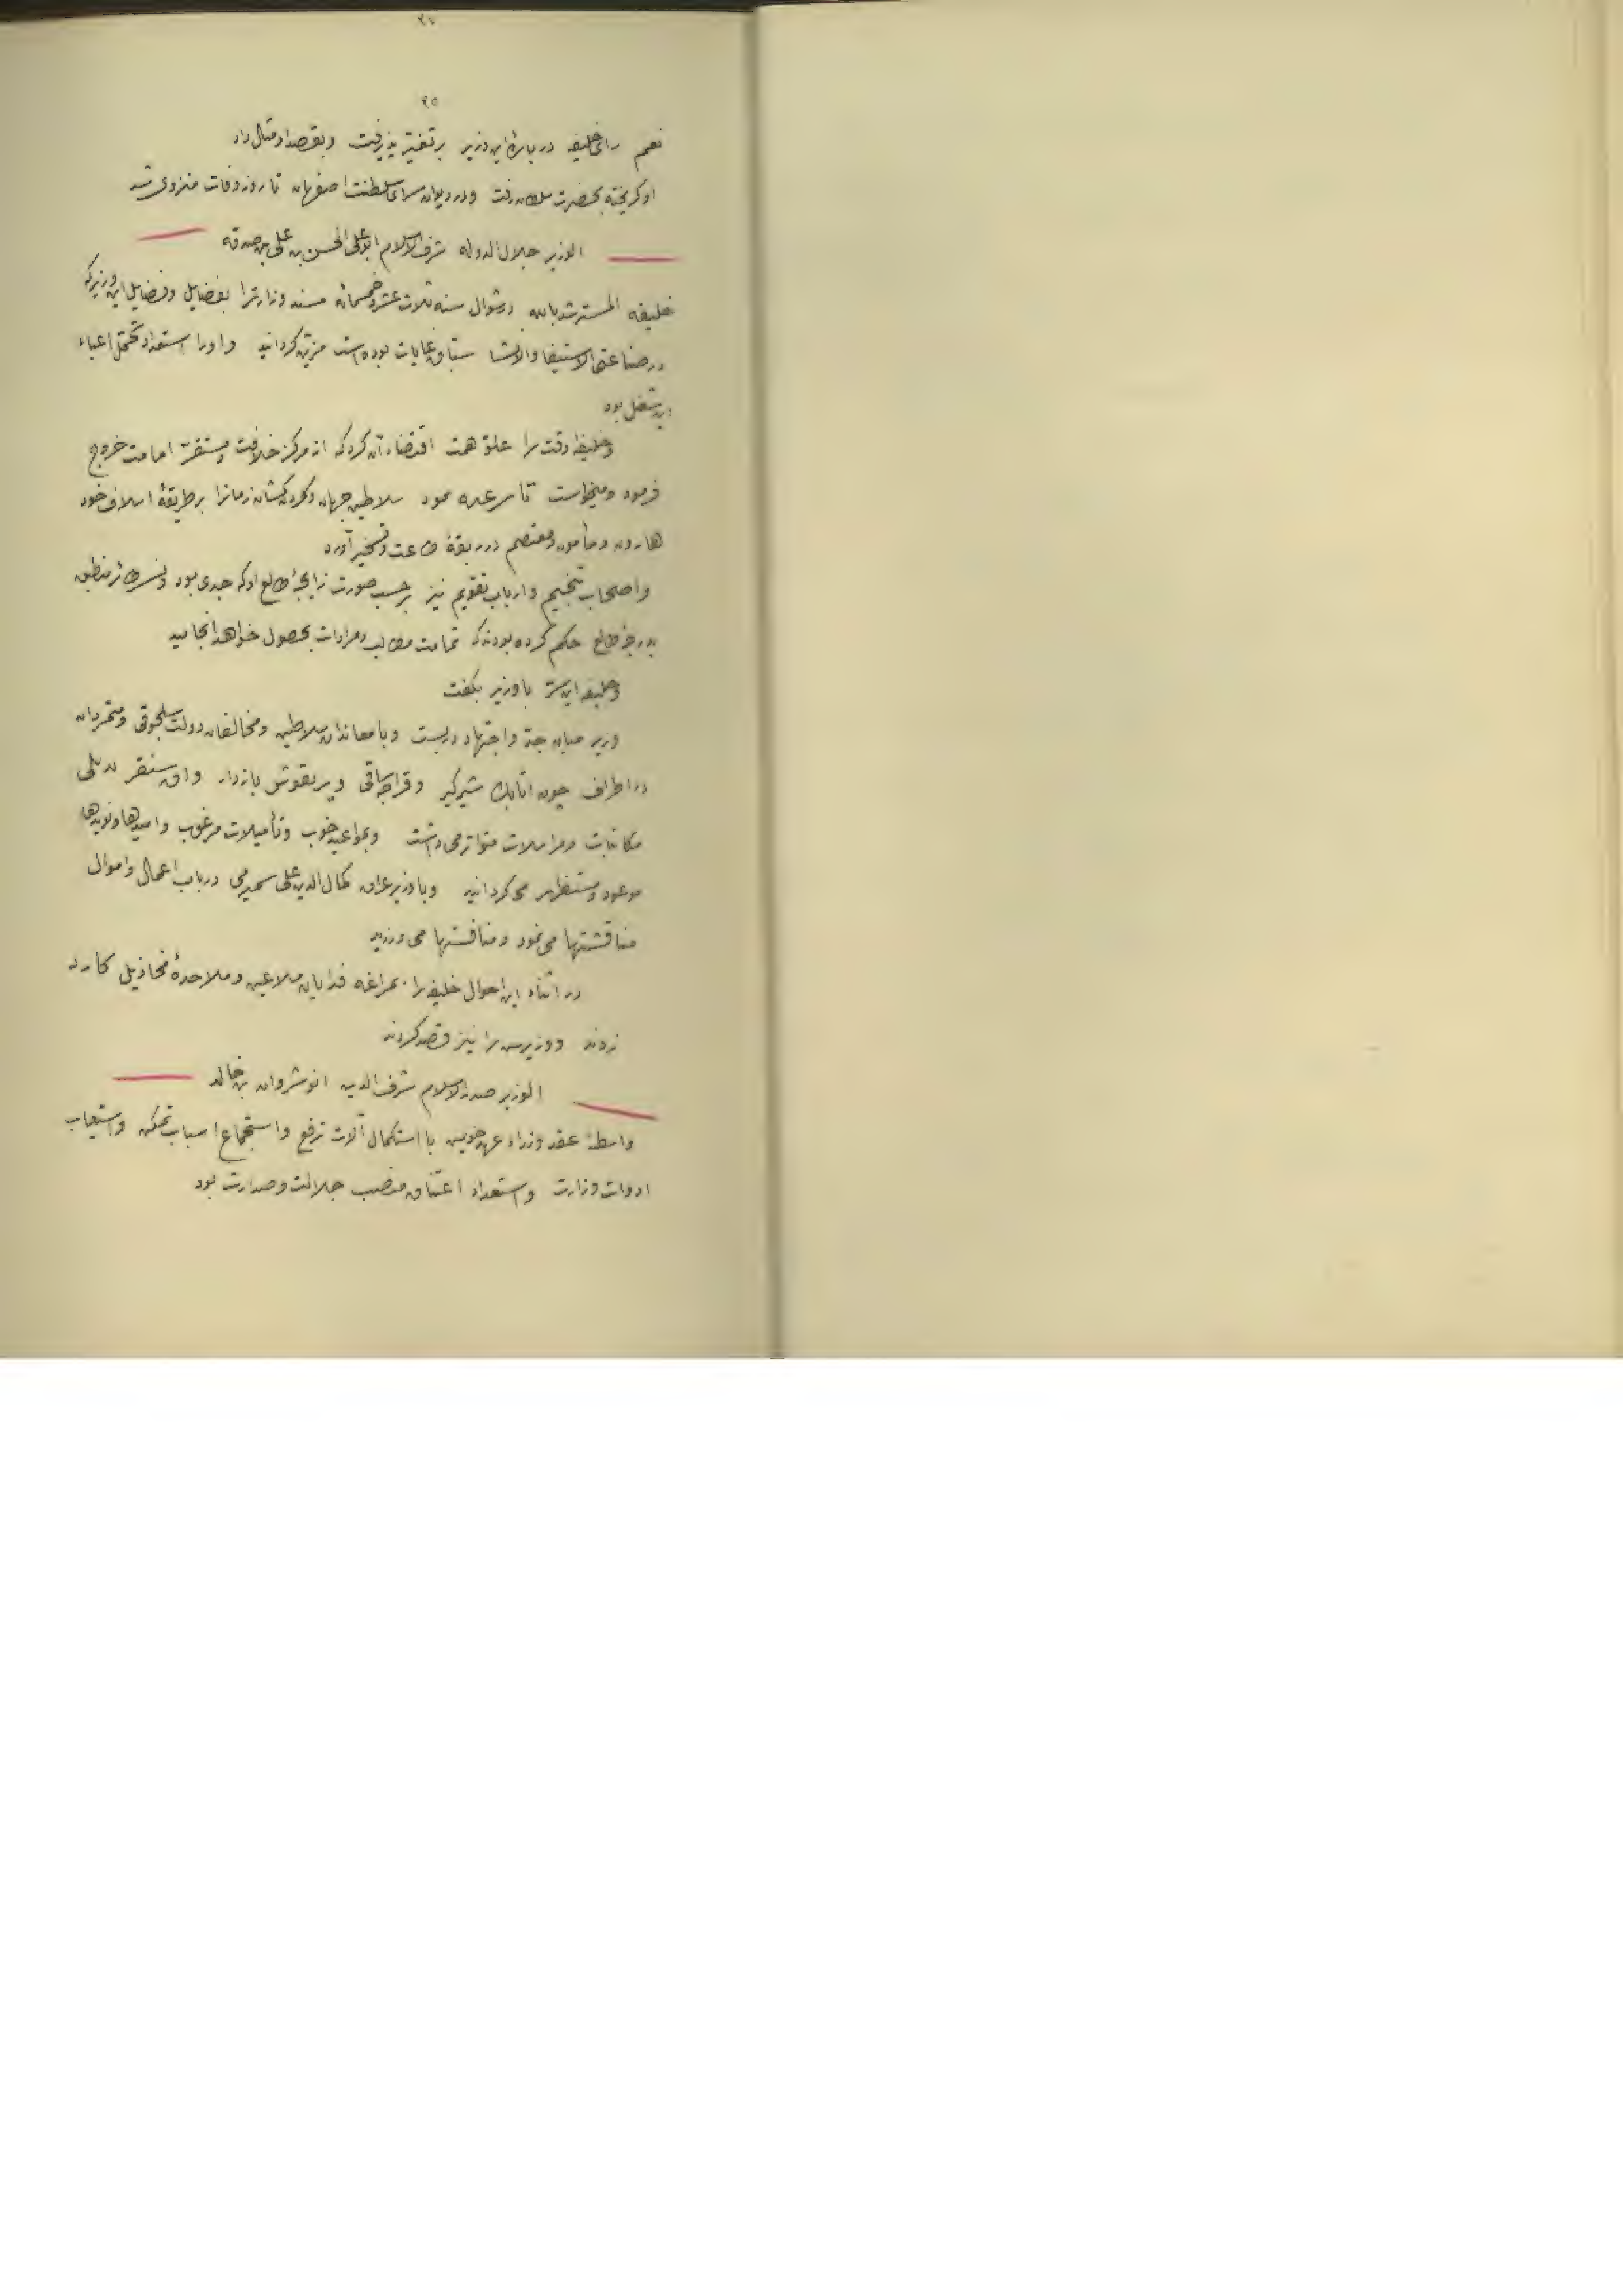 ۲۷
۲۵
نعم رای خلیفه در بارهٔ این وزیر بر تغیّر پذیرفت وبقصد او مثال داد
او گریخته بحضرت سلطان رفت ودر دیوان سرای سلطنت اصفهان تا روز وفات منزوی شد
الوزیر جلال الدوله شرف الاسلام ابو علی الحسن بن علی بن صدقه
خلیفه المسترشد بالله در شوال سنه ثلاث عشره وخمسمائه مسند وزارترا بفضایل وفضایل این وزیر که
در صناعتی الاستیفا والانشا سبّاق غایات بوده است مزیّن گردانید واورا استعداد تحمّل اعباء
این شغل بود
وخلیفهٔ وقت را علوّ همت اقتضاء آن کرد که از مرکز خلافت ومستقرّ امامت خروج
فرمود ومیخواست تا سلاطین جهان وگردنکشان زمانرا بر طریقهٔ اسلاف خود
هارون ومأمون ومعتصم در ربقهٔ طاعت وتسخیر آورد
واصحاب تنجیم وارباب تقویم نیز بر حسب صورت زایجهٔ طالع او که جدی بود ونسر طائر منطبق
بدرجهٔ طالع حکم کرده بودند که تمامت مطالب ومرادات بحصول خواهد انجامید
وخلیفه این سرّ با وزیر بگفت
وزیر میان جدّ واجتهاد دربست وبا معاندان سلاطین ومخالفان دولت سلجوقی ومتمرّدان
در اطراف چون اتابک شیرگیر وقراجه ساقی ویرنقوش بازدار واق سنقر
مکاتبات ومراسلات متواتر می داشت وبمواعید خوب وتأمیلات مرغوب وامیدها ونویدها
موعود ومستظهر می گردانید وبا وزیر عراق کمال الدین علی سمیرمی در باب اعمال واموال
مناقشتها می نمود ومنافستها می ورزید
در اثناء این احوال خلیفه را بمراغه فدایان ملاعین وملاحدهٔ مخاذیل کارد
زدند ووزیرش را نیز قصد کردند
الوزیر صدر الاسلام شرف الدین انوشروان بن خالد
واسطهٔ عقد وزراء عهد خویش با استکمال آلات ترفع واستجماع اسباب تمکن واستیعاب
ادوات وزارت واستعداد اعتناق منصب جلالت وصدارت بود